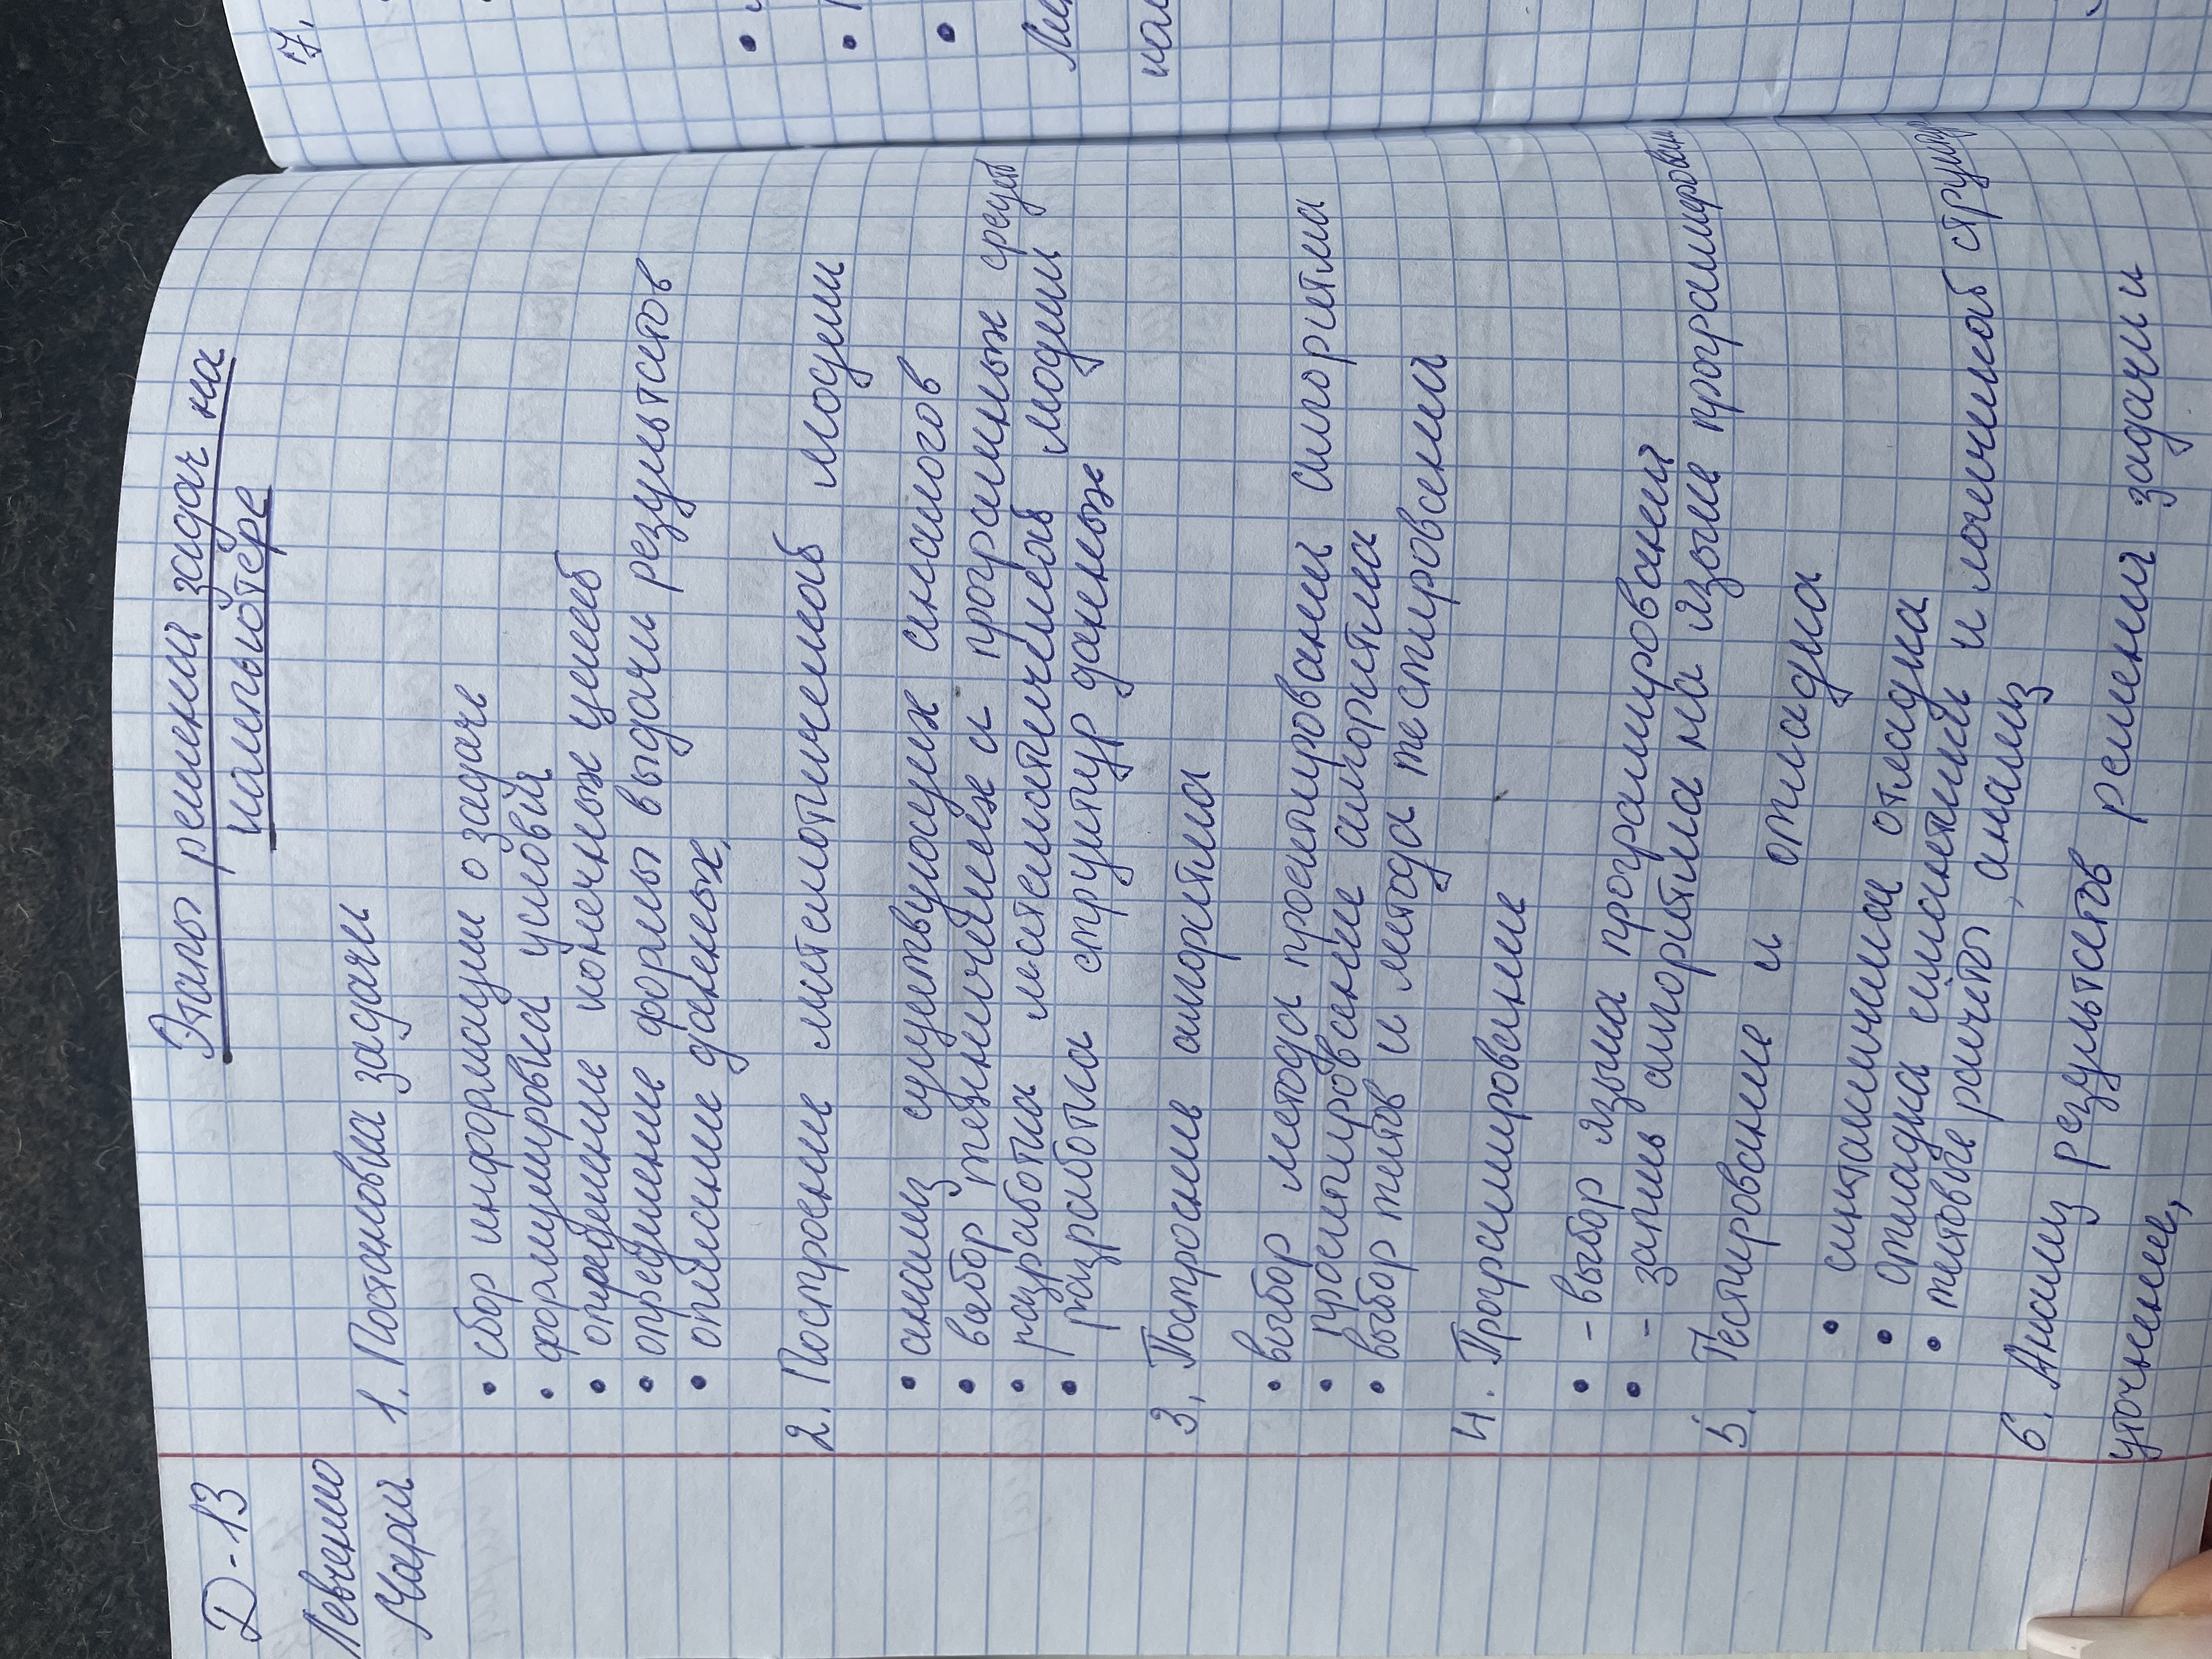 Д-13
Левченко
Мари
Этапы решения задач на
компьютере
1. Постановка задачи
• сбор информации о задаче
• формулировка условия
• определение конечных целей
• определение формы выдачи результатов
• описание данных.
2. Построение математической модели
• анализ существующих аналогов
• выбор технических и программных средств
• разработка математической модели
• разработка структур данных
3. Построение алгоритма
• выбор метода проектирования алгоритма
• проектирование алгоритма
• выбор тестов и метода тестирования
4. Программирование
• - выбор языка программирования
• - запись алгоритма на языке программирован
5. Тестирование и отладка
• синтаксическая отладка
• отладка семантики и логической структур
• тестовые расчёты, анализ
6. Анализ результатов решения задачи и
уточнение,
7.